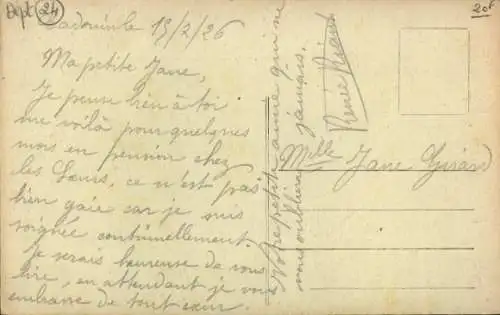 Dept 24
Cadouin le 15/2/26
Ma petite Jane,
Je pense bien à toi
me voilà pour quelques
mois en pension chez
les Sœurs, ce n'est pas
bien gaie car je suis
soignée continuellement.
Je serais heureuse de vous
lire, en attendant je vous
embrasse de tout cœur.
Votre petite amie qui ne
vous oubliera jamais.
Renée
20f
Mlle Jane Girard